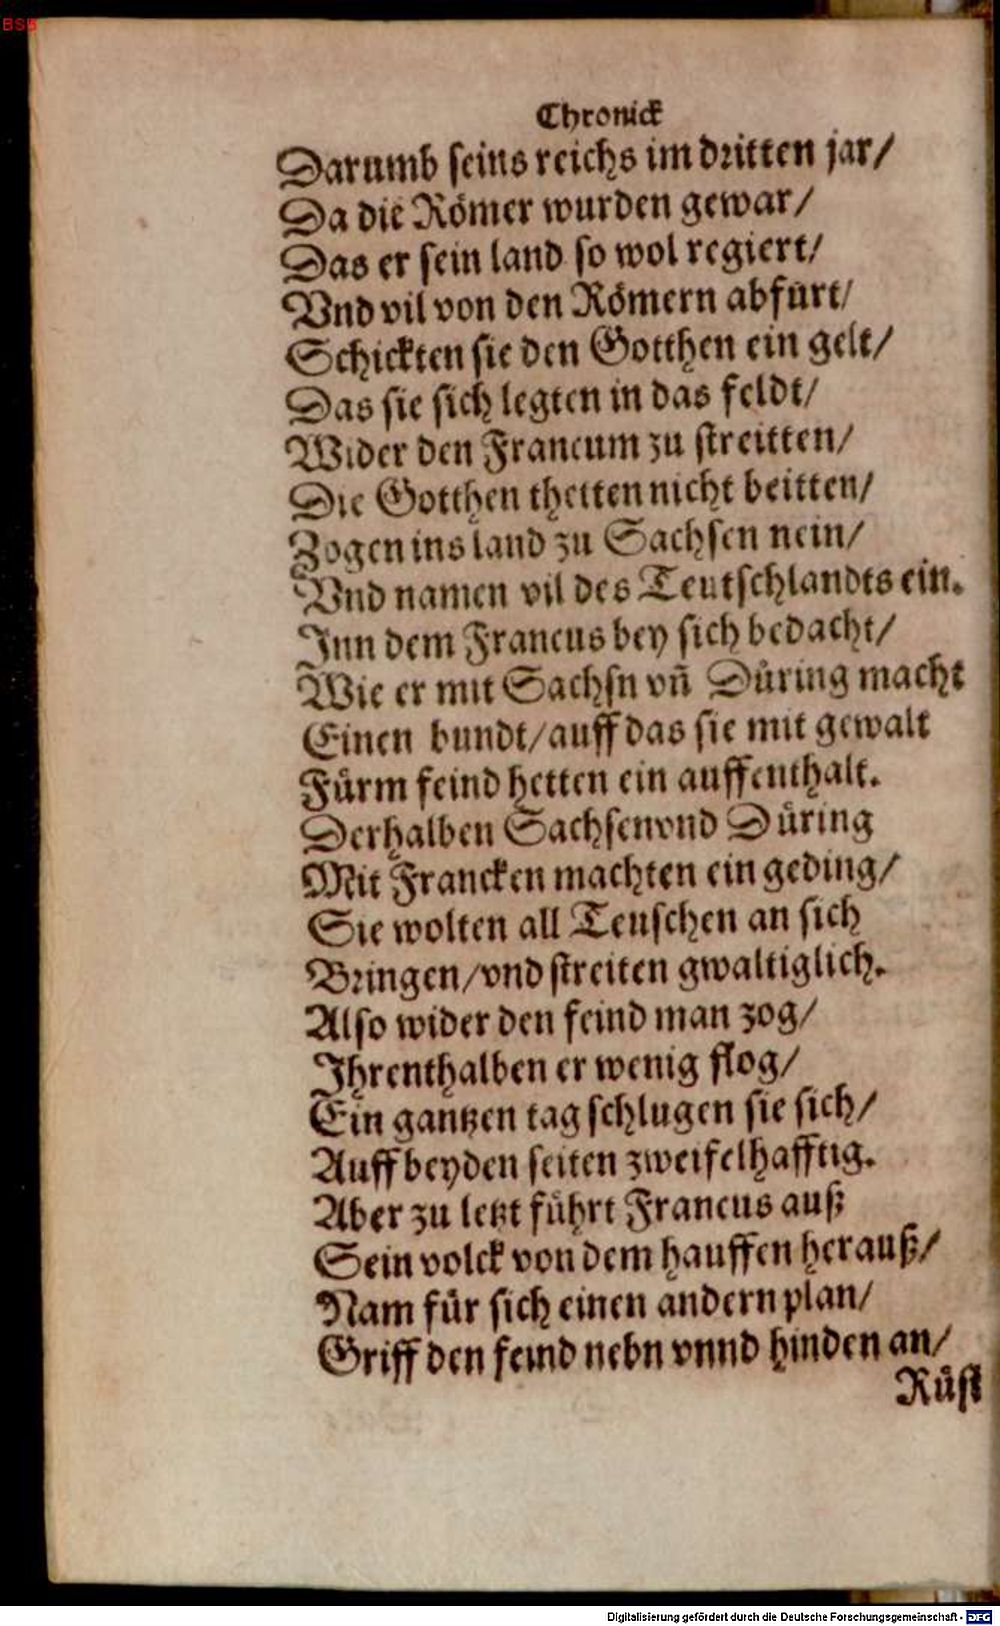 BSB
Chronick
Darumb seins reichs im dritten jar/
Da die Römer wurden gewar/
Das er sein land so wol regiert/
Vnd vil von den Römern abfürt/
Schickten sie den Gotthen ein gelt/
Das sie sich legten in das feldt/
Wider den Francum zu streitten/
Die Gotthen thetten nicht beitten/
Zogen ins land zu Sachsen nein/
Vnd namen vil des Teutschlandts ein.
Inn dem Francus bey sich bedacht/
Wie er mit Sachsn vñ Düring macht
Einen bundt/auff das sie mit gewalt
Fürm feind hetten ein auffenthalt.
Derhalben Sachsen vnd Düring
Mit Francken machten ein geding/
Sie wolten all Teuschen an sich
Bringen/vnd streiten gwaltiglich.
Also wider den feind man zog/
Ihrenthalben er wenig flog/
Ein gantzen tag schlugen sie sich/
Auff beyden seiten zweifelhafftig.
Aber zu letzt führt Francus auß
Sein volck von dem hauffen herauß/
Nam für sich einen andern plan/
Griff den feind nebn vnnd hinden an/
Rüst
Digitalisierung gefördert durch die Deutsche Forschungsgemeinschaft - DFG